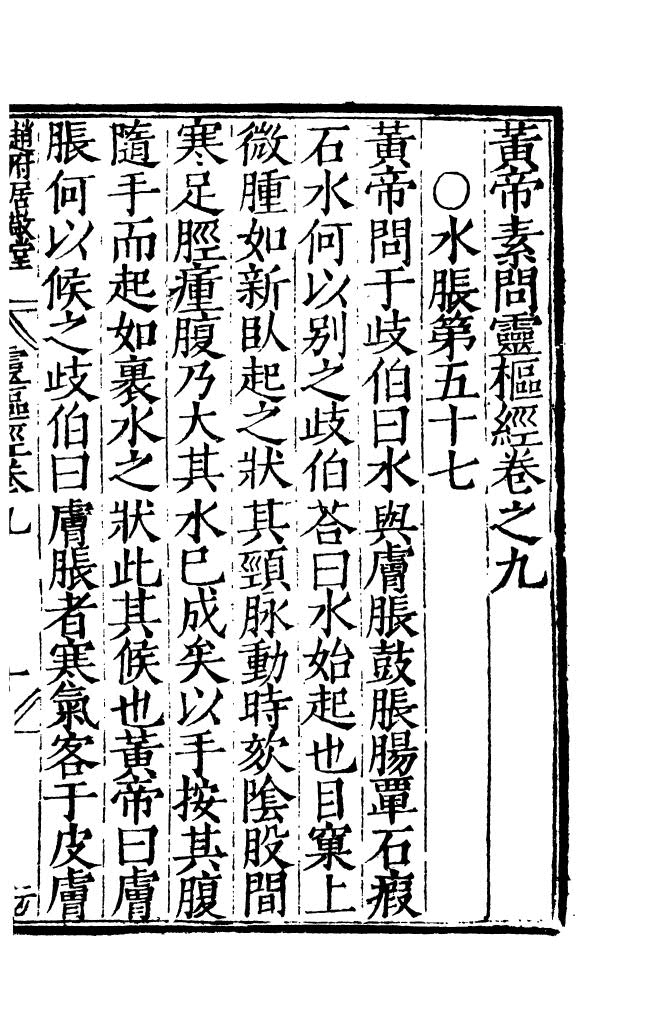 黃帝素問靈樞經卷之九
○水脹第五十七
黃帝問于歧伯曰水與膚脹鼓脹腸覃石瘕
石水何以別之歧伯荅曰水始起也目窠上
微腫如新臥起之狀其頸脉動時欬陰股間
寒足脛瘇腹乃大其水已成矣以手按其腹
隨手而起如裹水之狀此其候也黃帝曰膚
脹何以候之歧伯曰膚脹者寒氣客于皮膚
趙府居敬堂 靈樞經卷九 一